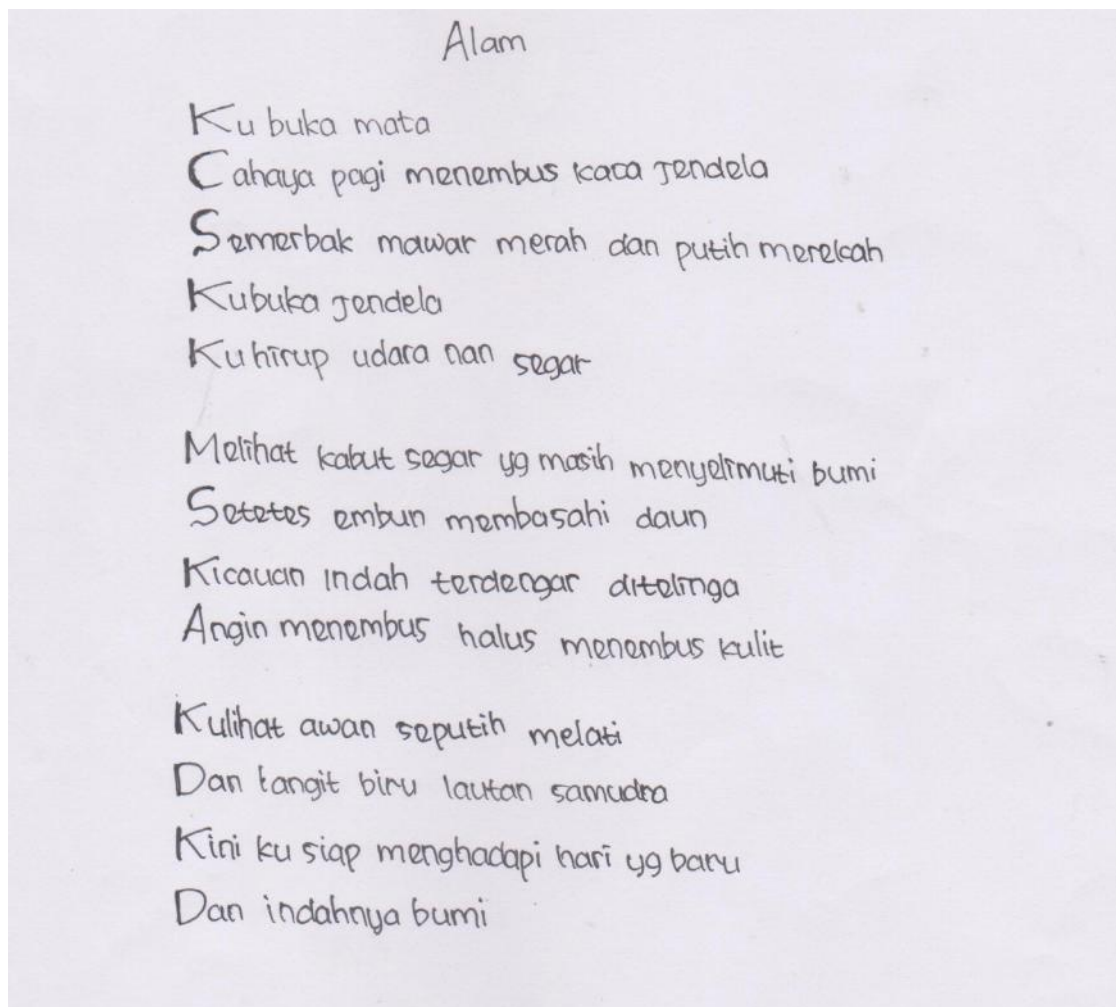 Alam
Ku buka mata
Cahaya pagi menembus kaca Jendela
Semerbak mawar merah dan putih merekah
Kubuka Jendela
Kuhirup udara nan segar
Melihat kabut segar yg masih menyelimuti bumi
Setetes embun membasahi daun
Kicauan Indah terdengar ditelinga
Angin menembus halus menembus kulit
Kulihat awan seputih melati
Dan langit biru lautan samudra
Kini ku siap menghadapi hari yg baru
Dan indahnya bumi